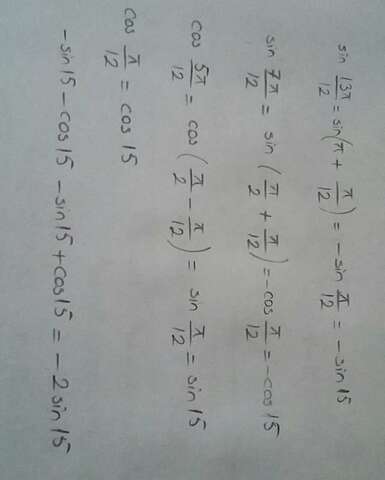 sin 13π/12 = sin(π + π/12) = -sin π/12 = -sin15
sin 7π/12 = sin (π/2 + π/12) = -cos π/12 = -cos15
cos 5π/12 = cos (π/2 - π/12) = sin π/12 = sin 15
cos π/12 = cos 15
-sin15 - cos15 - sin15 + cos15 = -2sin15